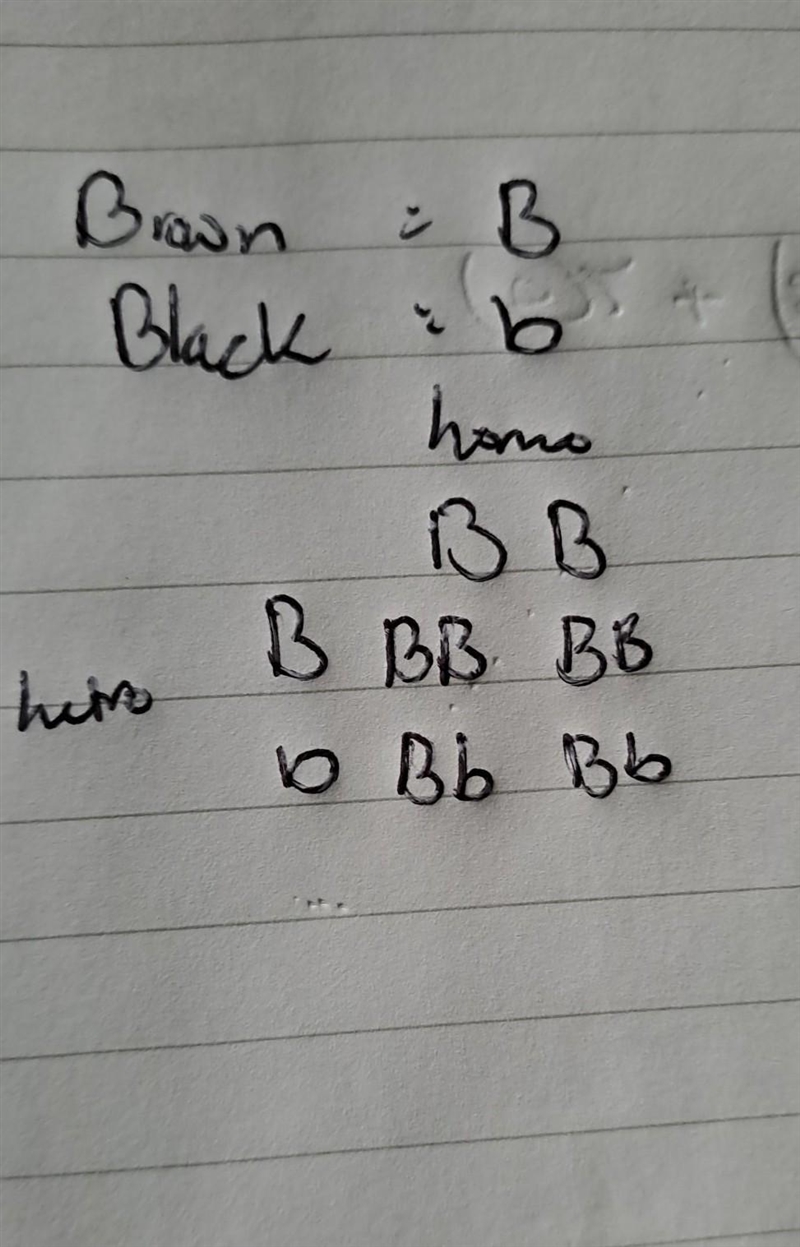 Brown = B
Black = b
homo
B B
B BB BB
hetro
b Bb Bb